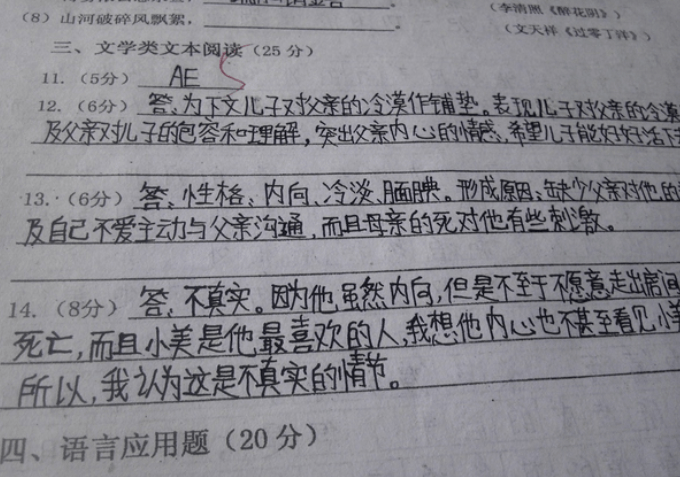 （李清照《醉花阴》）
（8）山河破碎风飘絮，
（文天祥《过零丁洋》）
三、文学类文本阅读（25分）
11.（5分） AE 5
12.（6分） 答：为下文儿子对父亲的冷漠作铺垫。表现儿子对父亲的冷漠
及父亲对儿子的包容和理解，突出父亲内心的情感，希望儿子能好好活下去
13.（6分） 答：性格：内向、冷淡、腼腆。形成原因：缺少父亲对他的
及自己不爱主动与父亲沟通，而且母亲的死对他有些刺激。
14.（8分） 答：不真实。因为他虽然内向，但是不至于不愿意走出房间
死亡，而且小美是他最喜欢的人，我想他内心也不甚至看见小美
所以，我认为这是不真实的情节。
四、语言应用题（20分）